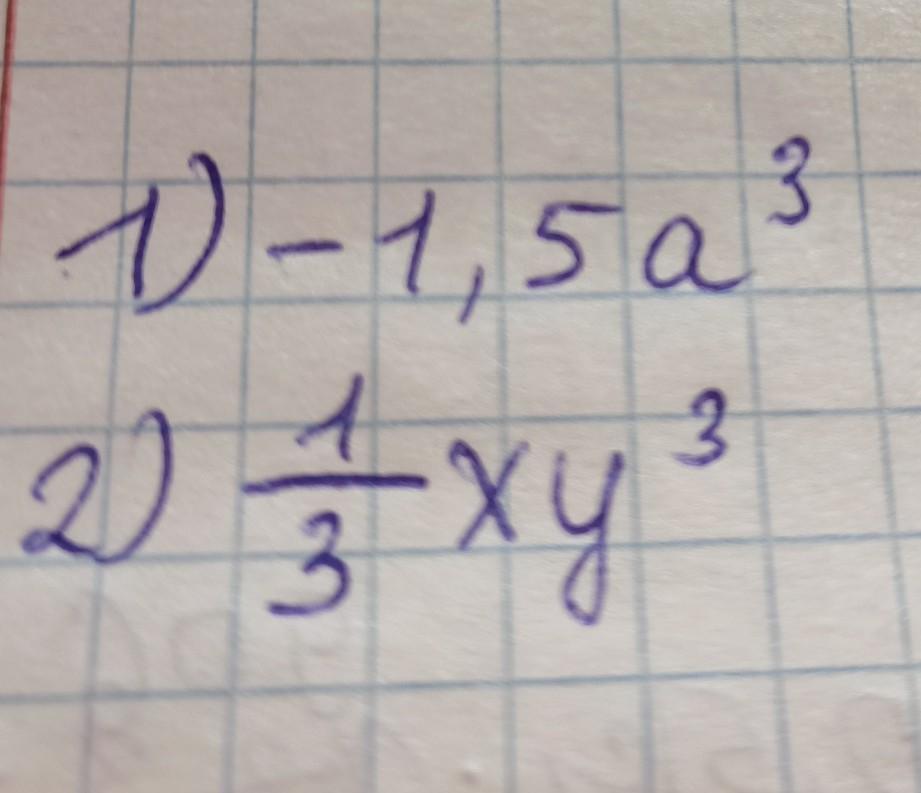 1) -1,5a³
2) 1/3 xy³